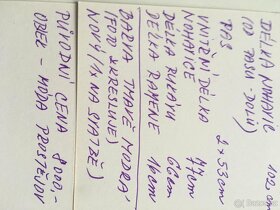 DÉLKA NOHAVIC 102cm
(OD PASU DOLŮ)
PAS 2 x 53cm
VNITŘNÍ DÉLKA
NOHAVICE 77cm
DÉLKA RUKÁVU 66cm
DÉLKA RAMENE 16cm
BARVA TMAVĚ MODRÁ
(FOD ZKRESLUJE)
NOVÝ (1x NA SVATBĚ)
PŮVODNÍ CENA 8000,-
OBLEK - MÓDA PROSTĚJOV